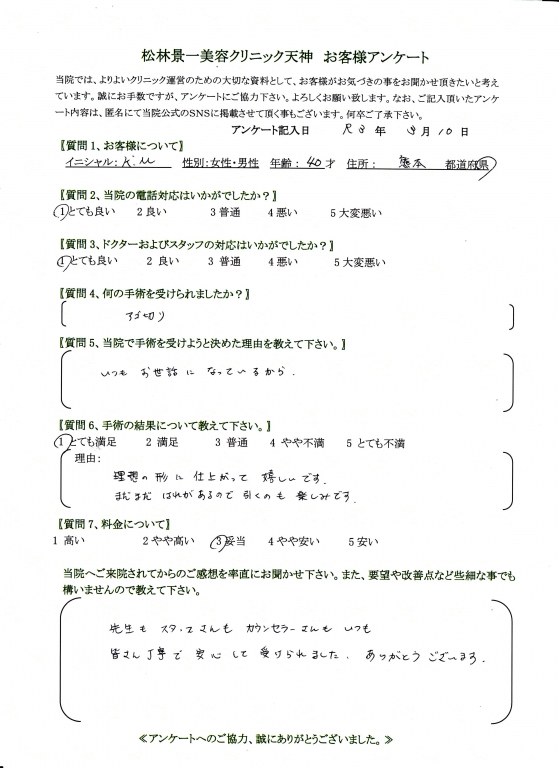 松林景一美容クリニック天神　お客様アンケート
当院では、よりよいクリニック運営のための大切な資料として、お客様がお気づきの事をお聞かせ頂きたいと考え
ています。誠にお手数ですが、アンケートにご協力下さい。よろしくお願い致します。なお、ご記入頂いたアンケ
ート内容は、匿名にて当院公式のSNSに掲載させて頂く事もございます。何卒ご了承下さい。
アンケート記入日　R3年　9月10日
〖質問1、お客様について〗
イニシャル：K.M　性別：女性・男性　年齢：40才　住所：熊本　都道府県
〖質問2、当院の電話対応はいかがでしたか？〗
1とても良い　2 良い　3 普通　4 悪い　5 大変悪い
〖質問3、ドクターおよびスタッフの対応はいかがでしたか？〗
1とても良い　2 良い　3 普通　4 悪い　5 大変悪い
〖質問4、何の手術を受けられましたか？〗
アゴ切り
〖質問5、当院で手術を受けようと決めた理由を教えて下さい。〗
いつも お世話に なっているから.
〖質問6、手術の結果について教えて下さい。〗
1とても満足　2 満足　3 普通　4 やや不満　5 とても不満
理由：
理想の形に 仕上がって 嬉しいです.
まだまだ はれがあるので 引くのも 楽しみです.
〖質問7、料金について〗
1 高い　2 やや高い　3 妥当　4 やや安い　5 安い
当院へご来院されてからのご感想を率直にお聞かせ下さい。また、要望や改善点など些細な事でも
構いませんので教えて下さい。
先生も スタッフさんも カウンセラーさんも いつも
皆さん丁寧で 安心して 受けられました. ありがとうございます.
≪アンケートへのご協力、誠にありがとうございました。≫